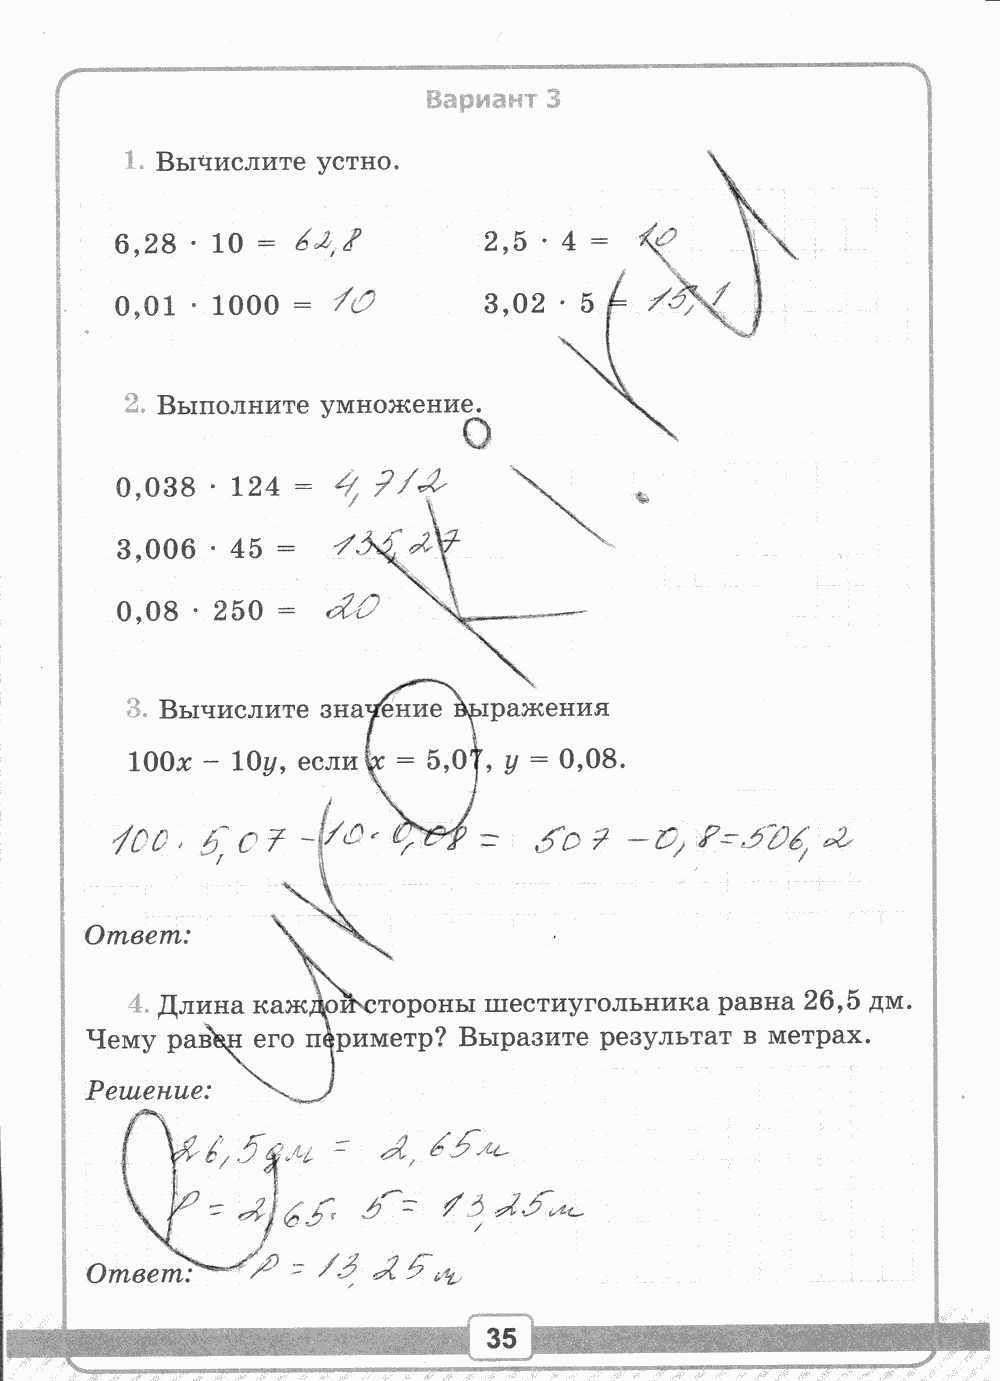 Вариант 3
1. Вычислите устно.
6,28 · 10 = 62,8
2,5 · 4 = 10
0,01 · 1000 = 10
3,02 · 5 = 15,1
2. Выполните умножение.
0,038 · 124 = 4,712
3,006 · 45 = 135,27
0,08 · 250 = 20
3. Вычислите значение выражения
100x − 10y, если x = 5,07, y = 0,08.
100 · 5,07 − 10 · 0,08 = 507 − 0,8 = 506,2
Ответ:
4. Длина каждой стороны шестиугольника равна 26,5 дм.
Чему равен его периметр? Выразите результат в метрах.
Решение:
26,5 дм = 2,65 м
P = 2,65 · 5 = 13,25 м
Ответ: P = 13,25 м
35